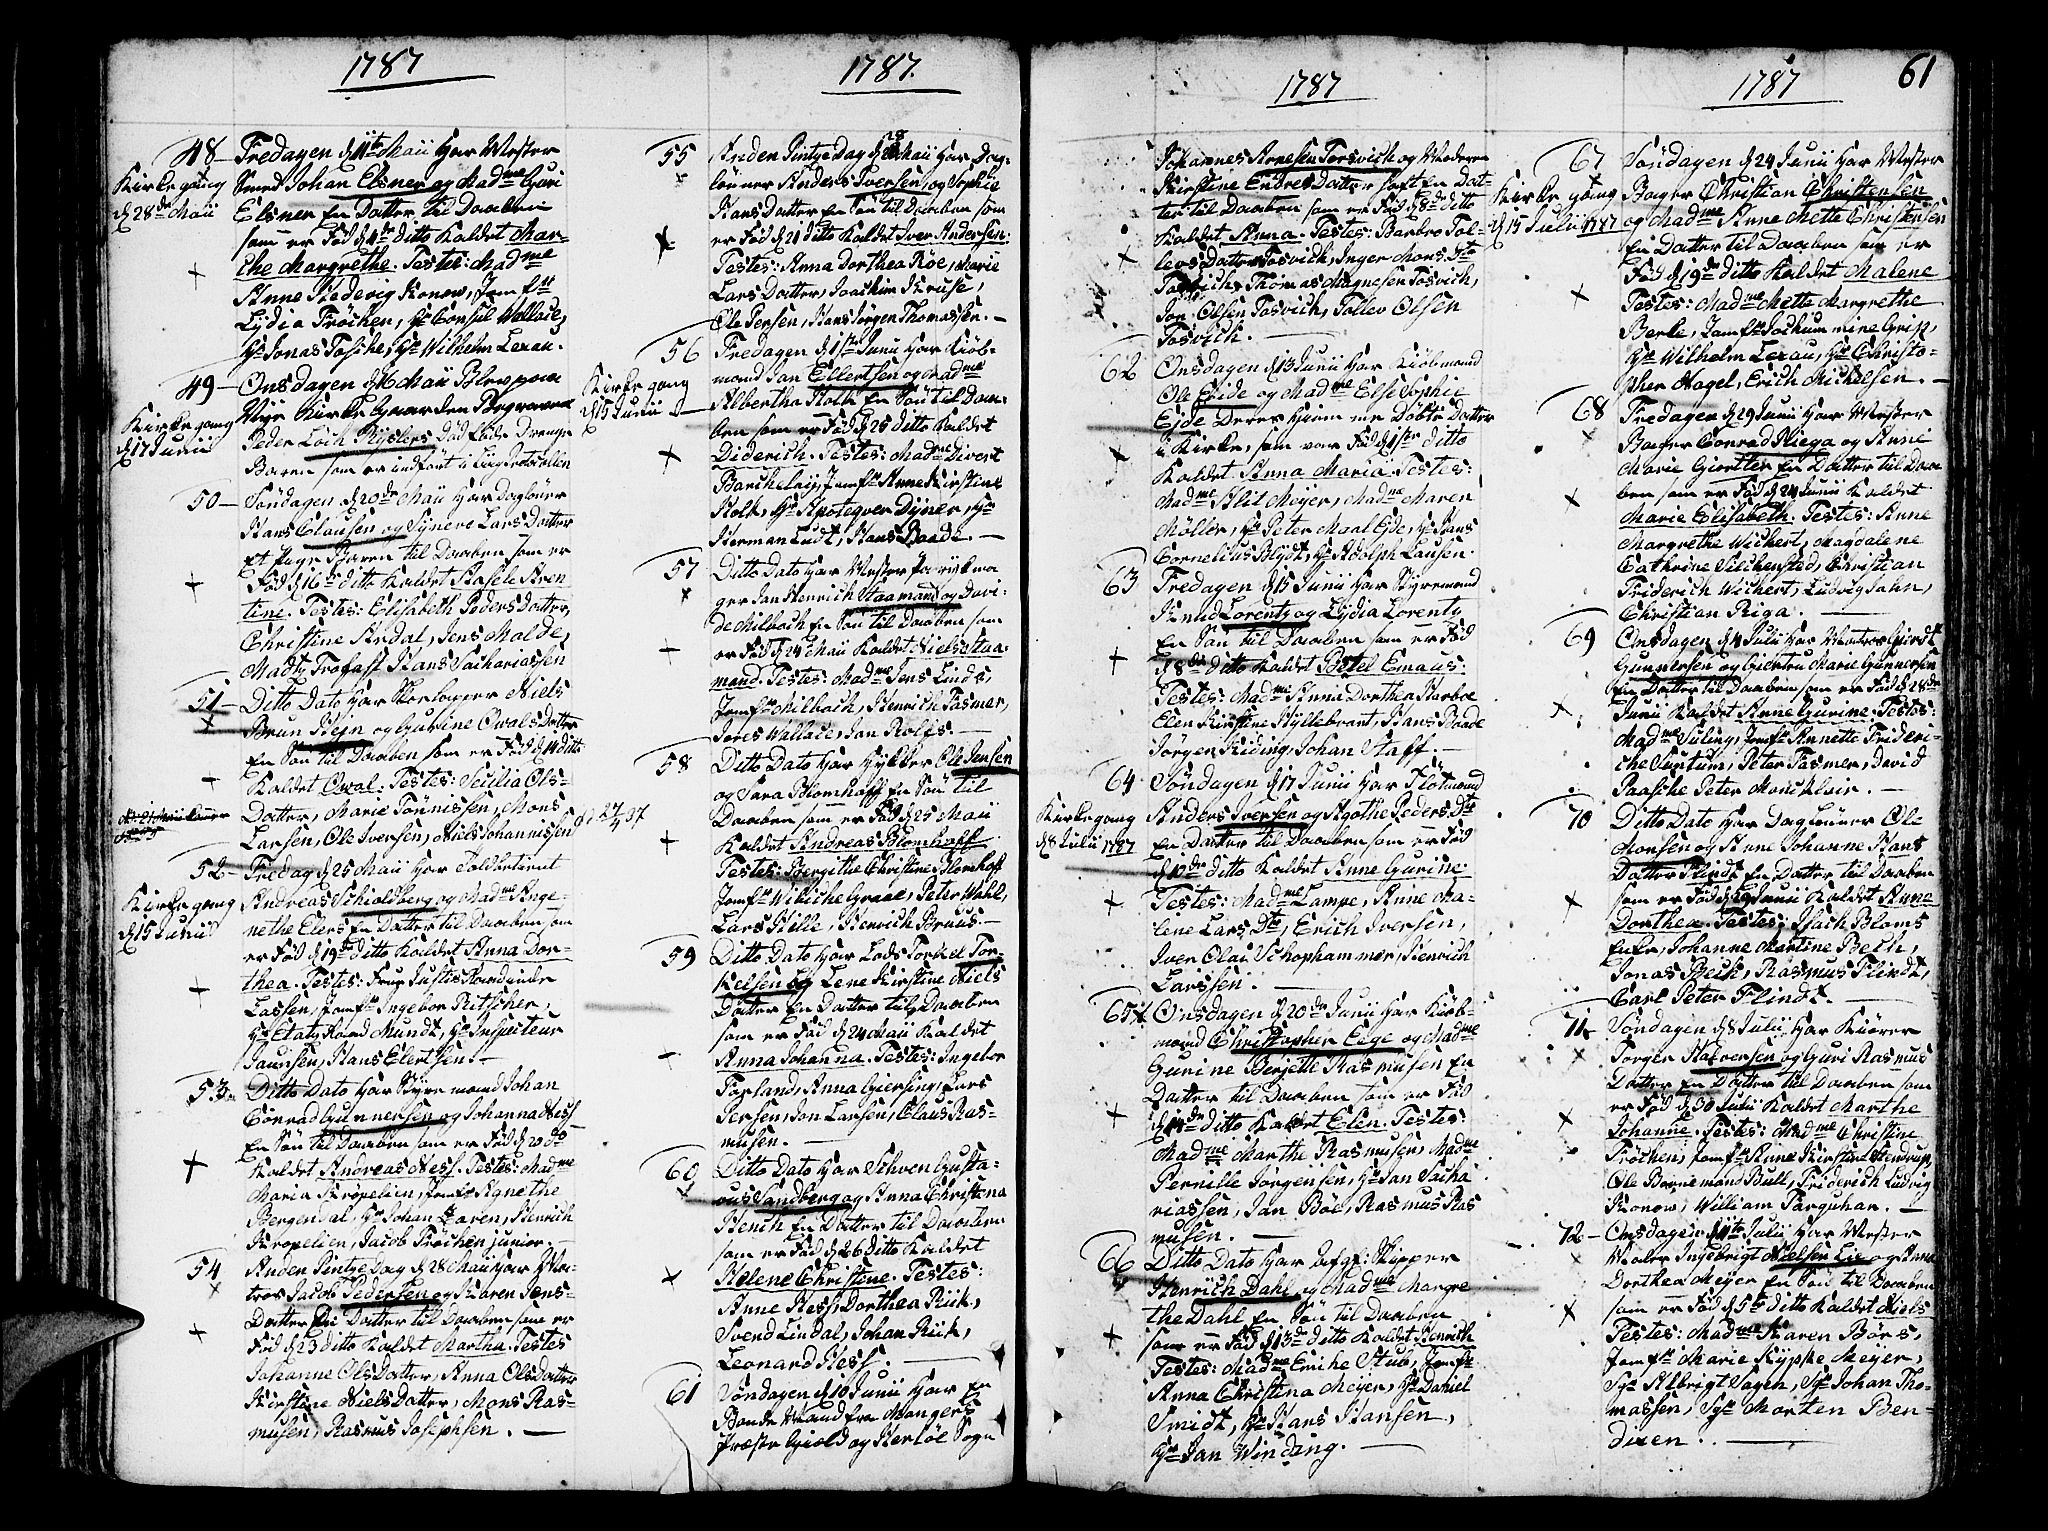 1787
48 Fredagen d 11te Maii har Mester
Kirkegang
d 28de Maii
Smed Johan Elsner og Madme Guri
Elsner En Datter til Daaben
som er Fød d 4de ditto Kaldet Mar-
the Margrethe. Testes: Madme
Anne Hedevig Konow, Jomfr
Lydia Frøchen, Hr Consul Wallace,
Hr Jonas Tosche, Hr Wilhelm Lexau.
49 Onsdagen d 16 Maii Blev paa
Kirkegang
d 17 Junii
Nye Kirke Gaarden Begraven
Peder Loch Ryslers Død Føde Drenge
Baren som er indført i Liig Protocollen
50 Søndagen d 20de Maii har Dagløner
Hans Clausen og Syneve Lars Datter
Et Pige Baren til Daaben som er
Fød d 16de ditto Kaldet Aasele Aren
tine. Testes: Elisabeth Peders Datter,
Christine Ardal, Jens Molde,
Mads Trofast Hans Sachariassen
51 Ditto Dato har
Brun Hejn og Gurine Owals Datter
En Søn til Daaben som er Fød d 14 ditto
Kaldet Owal. Testes: Secilia Ols-
Datter, Marie Tønnissen, Mons
Larsen, Ole Iversen, Niels Johannissen
52 Fredag d 25 Maii har Toldbetient
Kirkegang
d 15 Junii
Andreas Schioldberg og Madme Ange-
nethe Elers En Datter til Daaben som
er Fød d 19de ditto Kaldet Anna Dor-
thea. Testes: Frue Justis Raadinde
Lassen, Jomfr Ingebor Ritscher,
Hr Etats Raad Mundt, Hr Inspecteur
Jansen, Hans Elertsen.
53 Ditto Dato har Styremand Johan
Conrad Gunnersen og Johanna Ness
En Søn til Daaben som er Fød d 20de
Kaldet Andreas Ness. Testes: Madme
Maria Krøpelien, Jomfr Agnethe
Bergendal, Hr Johan Garen, Henrich
Kropelien, Jacob Frøchen junior.
54 Anden Pintze Dag d 28 Maii har Ma-
tros Jacob Pedersen og Karen Jens-
Datter En Datter til Daaben som er
Fød d 23 ditto Kaldet Martha. Testes
Johanne Ols Datter, Anna Ols Datter
Kirstine Niels Datter, Mons Ras-
musen, Rasmus Josephsen.
1787.
55 Anden Pintze Dag d 28 Maii har Dag-
løner Anders Iversen, og Sophie
Hans Datter En Søn til Daaben som
er Fød d 21 ditto Kaldet Iver Andersen:
Testes: Anna Dorthea Røe, Marie
Lars Datter, Joachim Kruse,
Ole Persen, Hans Jørgen Thomassen.
56 Fredagen d 1ste Junii har Kiøb-
Kirkegang
d 15 Junii
mand Jan Ellertsen og Madme
Albertha Holk En Søn til Daa-
ben som er Fød d 25 ditto Kaldet
Diderich. Testes: Madme Divert
Barchelaij, Jomfr Anne Kirstine
Holk, Hr Apoteqver Dyner, Hr
Herman Ludt, Hans Baade.
57 Ditto Dato har Mester Parykma
ger Jan Henrich Staamand og Davi-
de Milbach En Søn til Daaben som
er Fød d 24 Maii Kaldet Niels Staa-
mand. Testes: Madme Jens Lindt,
Jomfr Milbach, Henrich Fasmer,
Joris Wallace, Jan Rolfs.
58 Ditto Dato har Hykker Ole Jensen
og Sara Blomhoff En Søn til
Daaben som er Fød d 25 Maii
Kaldet Andreas Blomhoff.
Testes: Bergithe Christine Blomhoff
Jomfr Wibiche Graae, Peter Wahl,
Lars Hille, Henrich Boruus
59 Ditto Dato har Lods Torkel Tor-
kelsen og Lene Kirstine Niels
Datter En Datter til Daaben
som er Fød d 24 Maii Kaldet
Anna Johanna. Testes: Ingebor
Forland, Anna Giersing, Lars
Jersen, Jon Larsen, Claus Ras-
musen.
60 Ditto Dato har Schven Gusta-
vus Sandberg og Anna Christena
Hench En Datter til Daaben
som er Fød d 26 ditto Kaldet
Helene Christine. Testes:
Anne Hess, Dorthea Riik,
Svend Lindal, Johan Riik,
Leonard Hess.
61 Søndagen d 10 Junii har En
Bonde Mand fra Mangers
Præste Giæld og Herløe Sogn
1787
Johannes Arnesen Tosvich og Moderen
Kirstine Endres Datter haft En Dat-
ter til Daaben som er Fød d 8de ditto
Kaldet Anna. Testes: Barbro Tol-
levs Datter Tosvich, Inger Mons Dtr
Tosvich, Thomas Magnesen Tosvich,
Jon Olsen Tosvich, Tollev Olsen
Tosvich.
62 Onsdagen d 13 Junii har Kiøbmand
Ole Eide og Madme Else Sophie
Ejde Deres Hiemme Døbte Datter
i Kirke, som var Fød d 1ste ditto
Kaldet Anna Maria. Testes:
Madme Alit Meyer, Madme Maren
Møller, Hr Peter Maal Ejde, Hr Hans
Cornelius Blydt, Hr Adolph Lausen.
63 Fredagen d 15 Junii har Styremand
Knud Lorentz og Lydia Lorentz
En Søn til Daaben som er Fød
d 8de ditto Kaldet Petel Emaus:
Testes: Madme Anna Dorthea Harboe
Elen Kirstine Hyllebrant, Hans Baade
Jørgen Kiding, Johan Staff.
64 Søndagen d 17 Junii har Flotmand
Kirkegang
d 8 Julii 1787
Anders Iversen og Agothe Peders Dtr
En Datter til Daaben som er Fød
d 10de ditto Kaldet Anne Gurine.
Testes: Madme Lampe, Anne Ma-
lene Lars Dtr, Erich Iversen,
Iver Olai Schophammer, Henrich
Larssen.
65 Onsdagen d 20de Junii har Kiøb-
mand Christopher Eege og Madme
Gurine Berjette Rasmusen En
Datter til Daaben som er Fød
d 14de ditto Kaldet Elen. Testes:
Madme Marthe Rasmusen, Madme
Pernille Jørgensen, Hr Jan Sacha
riassen, Jan Bøe, Rasmus Ras
musen.
66 Ditto Dato har afgf: Skipper
Henrich Dahl og Madme Margre
the Dahl En Søn til Daaben
som er Fød d 13de ditto Kaldet Henrich
Testes: Madme Eriche Stub, Jomfr
Anna Christina Meyer, Hr Daniel
Smidt, Hr Hans Hansen,
Hr Jan Winding.
1787
61
67 Søndagen d 24 Junii har Mester
Kirkegang
d 15 Julii 1787
Bager Christian Christensen
og Madme Anne Mette Christensen
En Datter til Daaben som er
Fød d 19de ditto Kaldet Malene
Testes: Madme Mette Margrethe
Berke, Jomfr Jochummine Grip,
Hr Wilhelm Lexau, Hr Christo-
pher Nagel, Erich Michelsen.
68 Fredagen d 29 Junii har Mester
Bager Conrad Riega og Anne
Marie Giertler En Datter til Daa
ben som er Fød d 24 Junii Kaldet
Marie Elisabeth. Testes: Anne
Margrethe Wichert, Magdalene
Cathrine Silchensted, Christian
Friderich Wichert, Ludvig Jahn,
Christian Riga.
69 Onsdagen d 4 Julii har Matros Giert
Gunnersen og Giertru Marie Gunnersen
En Datter til Daaben som er Fød d 28de
Junii Kaldet Anne Gurine. Testes:
Madme Suling, Jomfr Annette Frideri-
che Suntum, Peter Fasmer, David
Paasche Peter Monchlair.
70 Ditto Dato har Dagløner Ole
Monsen og Anne Johanne Hans
Datter Flindt En Datter til Daaben
som er Fød d 29 Junii Kaldet Anne
Dorthea. Testes: Isach Bloms
Enke, Johanne Martine Bech,
Jonas Bech, Rasmus Flindt,
Carl Peter Flindt.
71 Søndagen d 8 Julii har Kiører
Torger Halvorsen og Guri Rasmus
Datter En Datter til Daaben som
er Fød d 30 Julii Kaldet Marthe
Johanne. Testes: Madme Christine
Frøchen, Jomfr Anne Kirstine Hendrup,
Ole Bornemand Bull, Friderich Ludvig
Konow, William Farquhar.
72 Onsdagen d 11te Julii har Mester
Maler Ingebrigt Nielsen Lie og Anna
Dorthea Meyer En Søn til Daaben
som er Fød d 5te ditto Kaldet Niels
Testes: Madme Karen Børs,
Jomfr Marie Kypke Meyer,
Sgr Albrigt Sagen, Sgr Johan Tho-
massen, Sgr Morten Ben-
dixen.